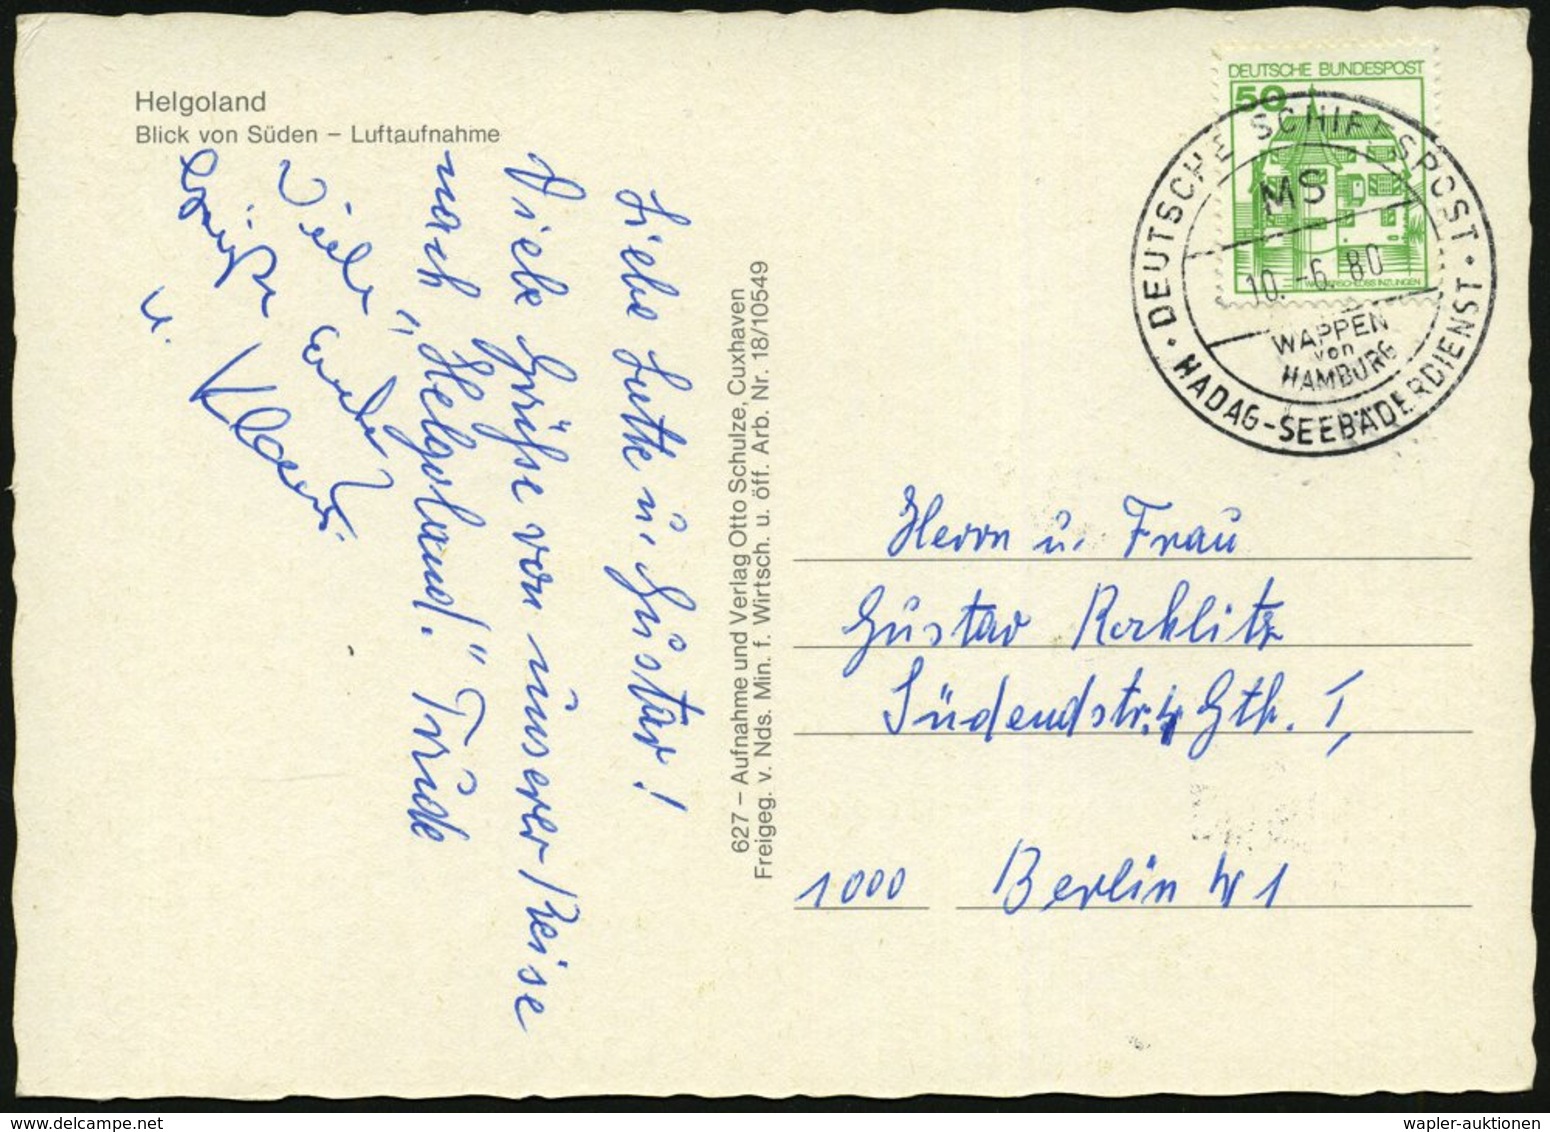 Helgoland
Blick von Süden – Luftaufnahme
DEUTSCHE BUNDESPOST
50
WASSERSCHLOSS INZLINGEN
• DEUTSCHE SCHIFFSPOST •
MS
10.-6.80
WAPPEN
von
HAMBURG
HADAG-SEEBÄDERDIENST
Liebe Lotte u. Gustav!
Viele Grüße von unserer Reise
nach „Helgoland." Trude
Viele
Grüße
u.
Klaus.
627 – Aufnahme und Verlag Otto Schulze, Cuxhaven
Freigeg. v. Nds. Min. f. Wirtsch. u. öff. Arb. Nr. 18/10549
Herrn u. Frau
Gustav Rochlitz
Südendstr. Gth. I,
1000 Berlin 41
wapler-auktionen